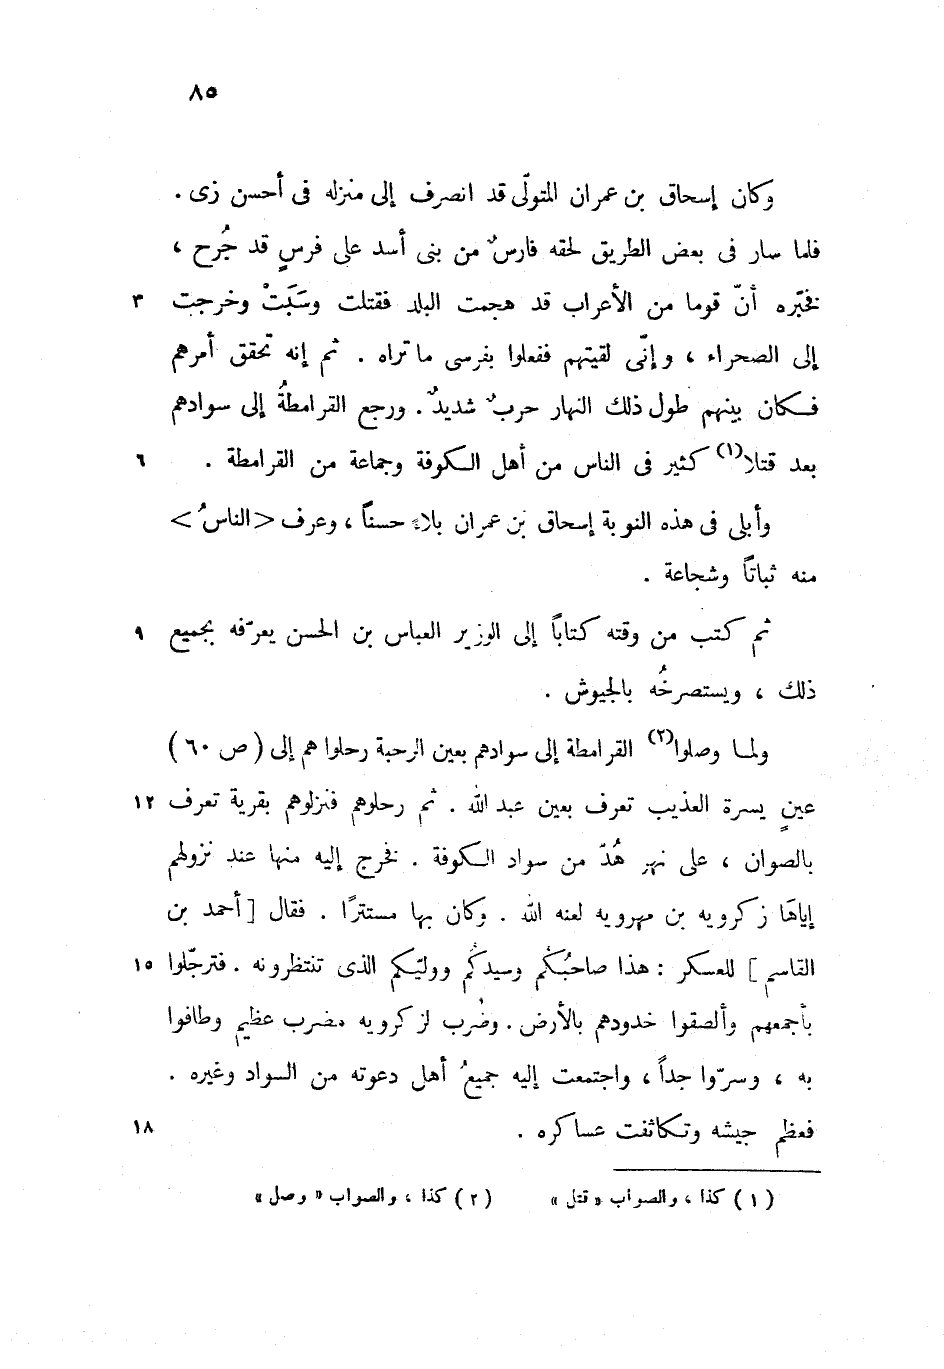 ٨٥
وكان إسحاق بن عمران المتولّى قد انصرف إلى منزله فى أحسن زى .
فلما سار فى بعض الطريق لحقه فارسٌ من بنى أسد على فرسٍ قد جُرح ،
فخبّره أنّ قوما من الأعراب قد هجمت البلد فقتلت وسَبَتْ وخرجت ٣
إلى الصحراء ، وإنّى لقيتهم ففعلوا بفرسى ما تراه . ثم إنه تحقق أمرهم
فكان بينهم طول ذلك النهار حربٌ شديدٌ . ورجع القرامطةُ إلى سوادهم
بعد قتلا(١) كثير فى الناس من أهل الكوفة وجماعة من القرامطة . ٦
وأبلى فى هذه النوبة إسحاق بن عمران بلاءً حسناً ، وعرف <الناسُ>
منه ثباتاً وشجاعة .
ثم كتب من وقته كتاباً إلى الوزير العباس بن الحسن يعرّفه بجميع ٩
ذلك ، ويستصرخُه بالجيوش .
ولما وصلوا(٢) القرامطة إلى سوادهم بعين الرحبة رحلوا هم إلى (ص ٦٠)
عينٍ يسرة العذيب تعرف بعين عبد الله . ثم رحلوهم فنزلوهم بقرية تعرف ١٢
بالصوان ، على نهر هُدّ من سواد الكوفة . فخرج إليه منها عند نزولهم
إياهَا زكرويه بن مهرويه لعنه الله . وكان بها مستترًا . فقال [أحمد بن
القاسم] للعسكر : هذا صاحبُكم وسيدكُم ووليّكم الذى تنتظرونه . فترجّلوا ١٥
بأجمعهم وألصقوا خدودهم بالأرض . وضُرب لزكرويه مضرب عظيم وطافوا
به ، وسرّوا جداً ، واجتمعت إليه جميعُ أهل دعوته من السواد وغيره .
فعظم جيشه وتكاثفت عساكره . ١٨
(١) كذا ، والصواب «قتل» (٢) كذا ، والصواب «وصل»